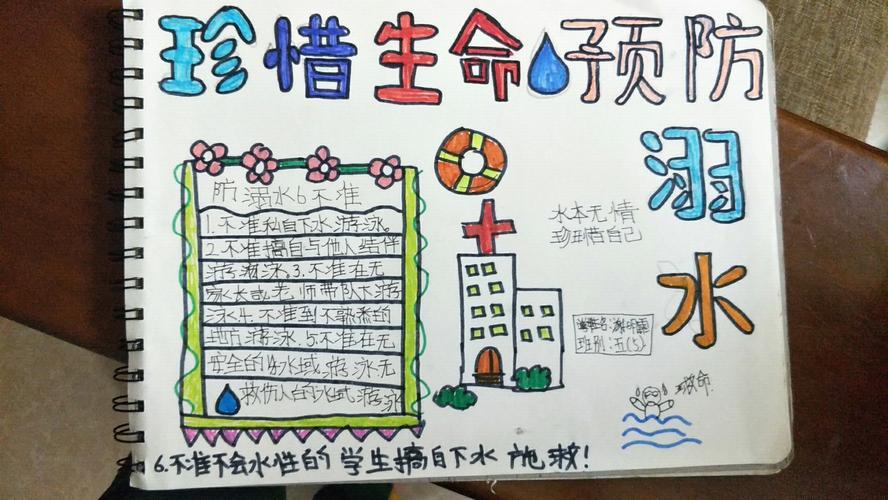 珍惜生命预防
溺
水
防溺水6不准
1.不准私自下水游泳。
2.不准擅自与他人结伴
游泳.3.不准在无
家长或老师带队下游
泳4.不准到不熟悉的
地方游泳.5.不准在无
安全的水域游泳无
救伤人的水域游泳
6.不准不会水性的学生擅自下水施救!
水本无情
珍惜自己
姓名:谢
班别:五(5)
救命